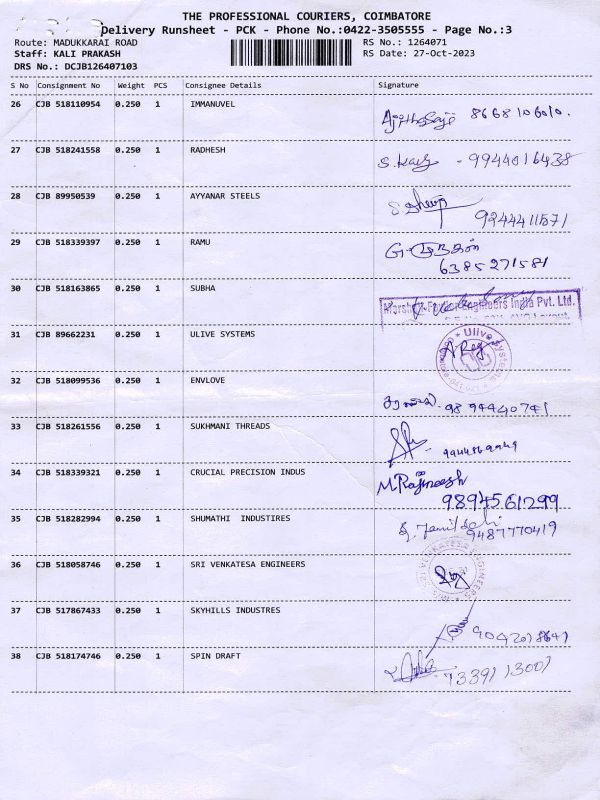 THE PROFESSIONAL COURIERS, COIMBATORE
Delivery Runsheet - PCK - Phone No.:0422-3505555 - Page No.:3
Route: MADUKKARAI ROAD RS No.: 1264071
Staff: KALI PRAKASH RS Date: 27-Oct-2023
DRS No.: DCJB126407103
S No Consignment No Weight PCS Consignee Details Signature
26 CJB 518110954 0.250 1 IMMANUVEL 8668106010.
27 CJB 518241558 0.250 1 RADHESH - 9944016438
28 CJB 89950539 0.250 1 AYYANAR STEELS
29 CJB 518339397 0.250 1 RAMU
6385271581
30 CJB 518163865 0.250 1 SUBHA
Engineers India Pvt. Ltd.
31 CJB 89662231 0.250 1 ULIVE SYSTEMS Ulive Systems
32 CJB 518099536 0.250 1 ENVLOVE 9894440741
33 CJB 518261556 0.250 1 SUKHMANI THREADS
34 CJB 518339321 0.250 1 CRUCIAL PRECISION INDUS M. Rajineesh
9894561299
35 CJB 518282994 0.250 1 SHUMATHI INDUSTIRES
9487770419
36 CJB 518058746 0.250 1 SRI VENKATESA ENGINEERS VENKATESA ENGINEERS
37 CJB 517867433 0.250 1 SKYHILLS INDUSTRES
38 CJB 518174746 0.250 1 SPIN DRAFT 7339113001